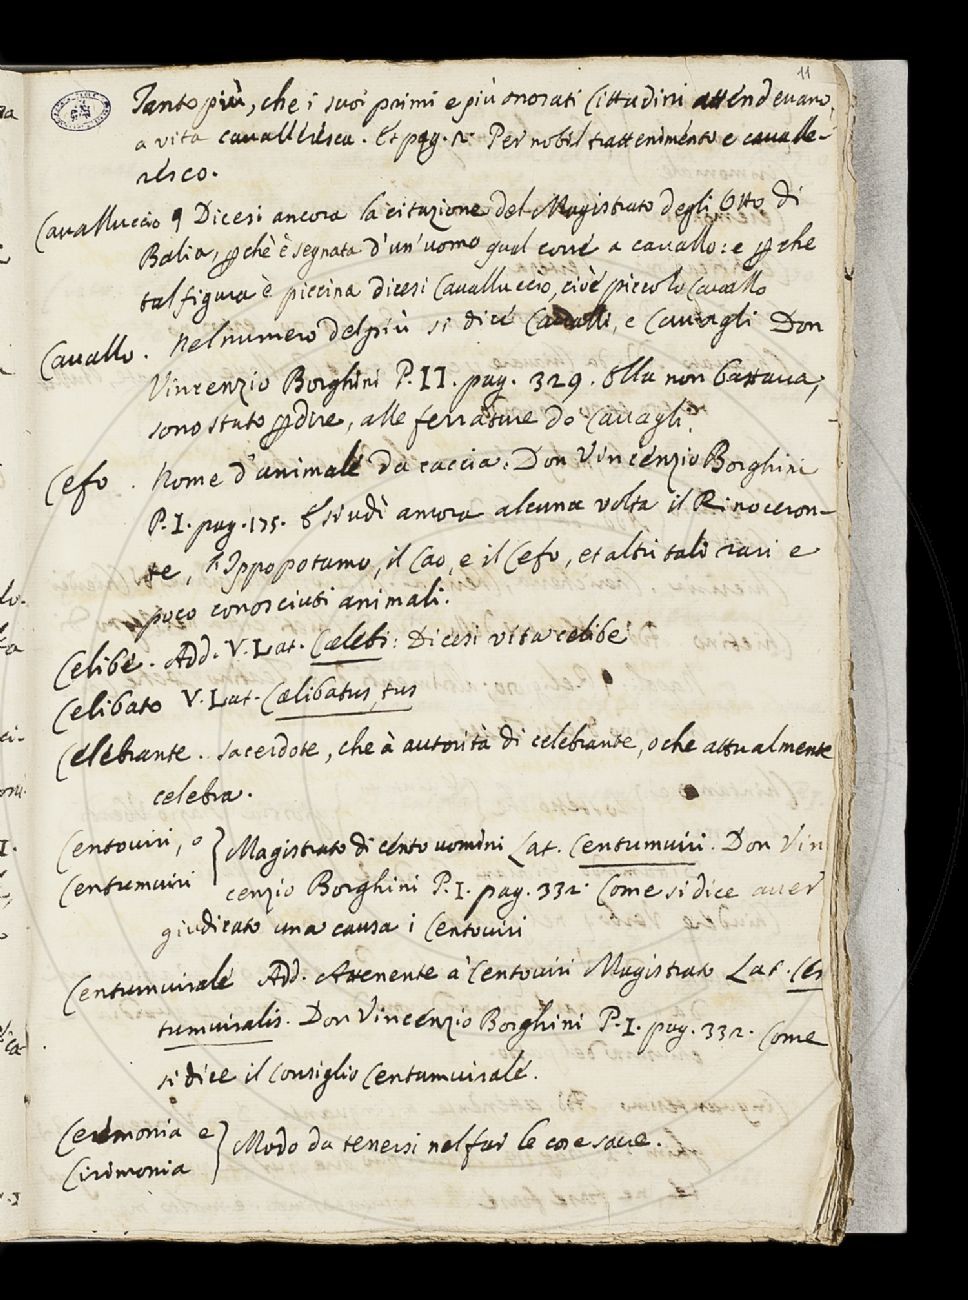 11
Tanto più, che i suoi primi e più onorati Cittadini attendevano
a vita cavalleresca. Et pag. 2. Per nobil trattenimento e cavalle-
resco.
Cavalluccio Dicesi ancora la citazione del Magistrato degli Otto di
Balia, ꝑchè è segnata d'un'uomo qual corre a cavallo: e ꝑche
tal figura è piccina dicesi Cavalluccio, cioè piccolo Cavallo
Cavallo. Nel numero del più si dice Cavalli, e Cavagli Don
Vincenzio Borghini P. II. pag. 329. Ella non battava,
sono stato ꝑdire, alle ferrature do Cavagli.
Cefo. Nome d'animale da caccia. Don Vincenzio Borghini
P. I. pag. 175. E si udì ancora alcuna volta il Rinoceron-
te, l'Ippopotamo, il Cao, e il Cefo, et altri tali rari e
poco conosciuti animali.
Celibe. Add. V. Lat. Cælebs: Dicesi vita celibe
Celibato V. Lat. Cælibatus, tus
Celebrante. sacerdote, che à autorità di celebrante, o che attualmente
celebra.
Centoviri, o } Magistrato di cento uomini Lat. Centumviri. Don Vin
Centumviri cenzio Borghini P. I. pag. 332. Come si dice aver
giudicato una causa i Centoviri
Centumvirale Add. Attenente a' Centoviri Magistrato Lat. Cen
tumviralis. Don Vincenzio Borghini P. I. pag. 332. Come
si dice il Consiglio Centumvirale.
Cerimonia e } Modo da tenersi nel far le cose sacre.
Cirimonia